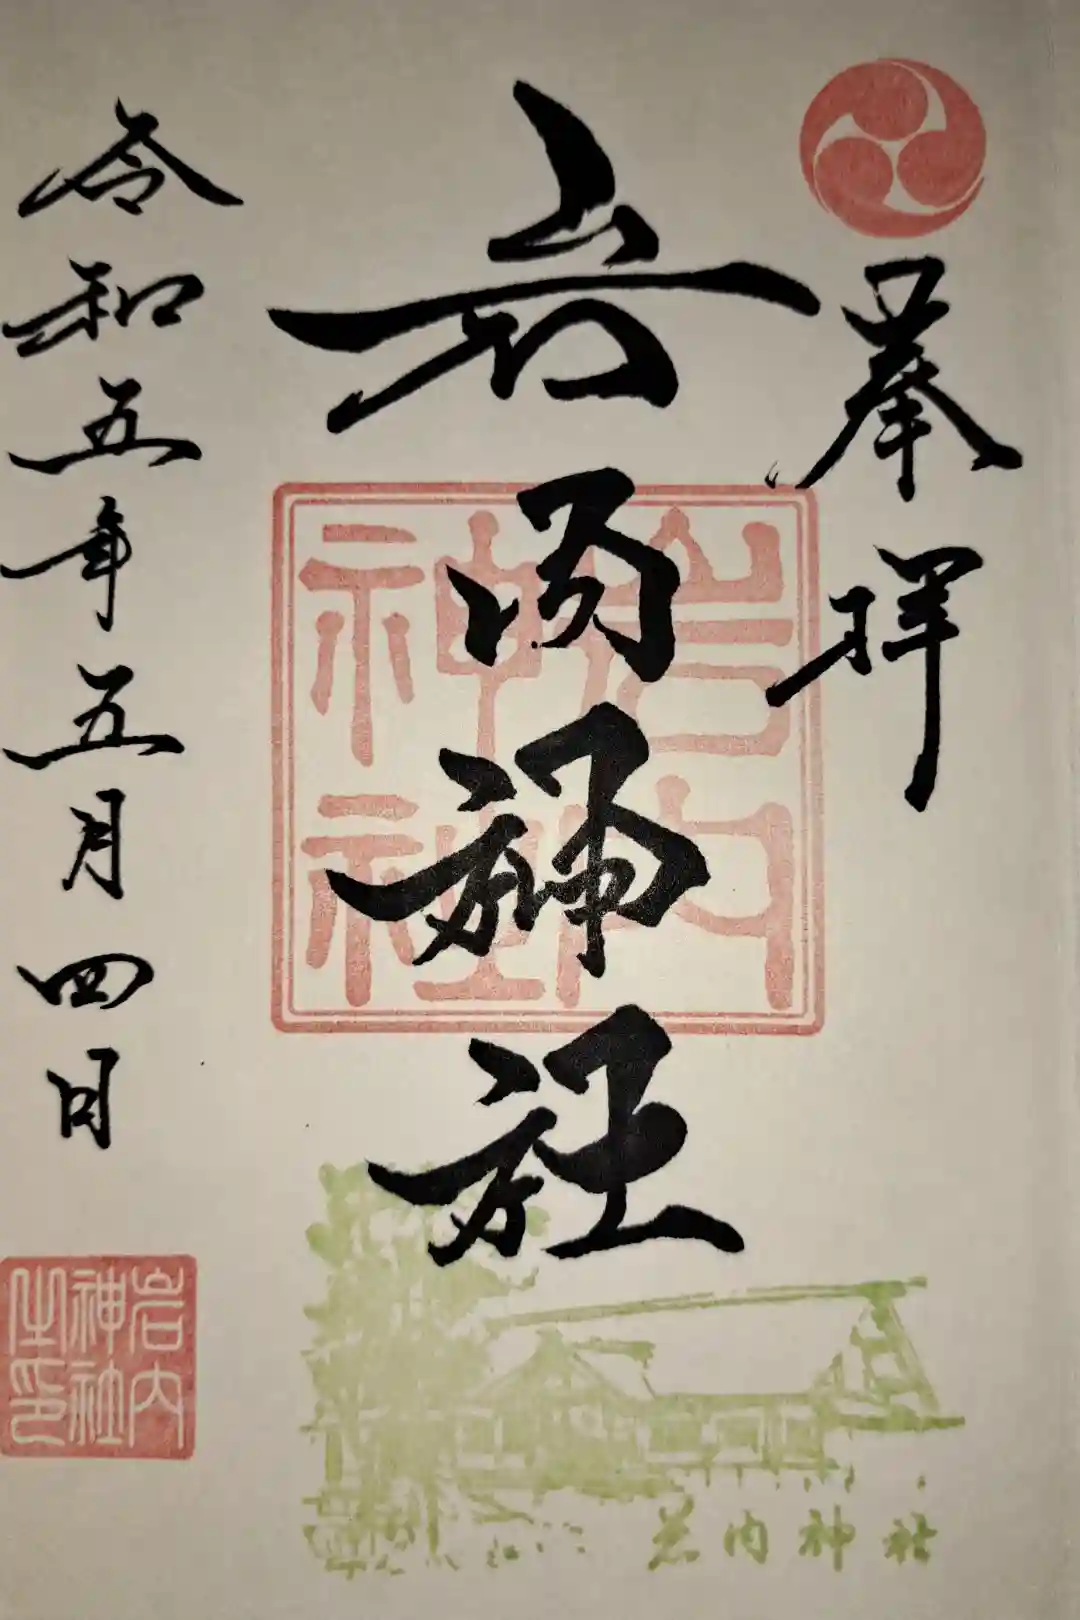 奉拝
岩内神社
岩内
神社
令和五年五月四日
岩内
神社
之印
岩内神社